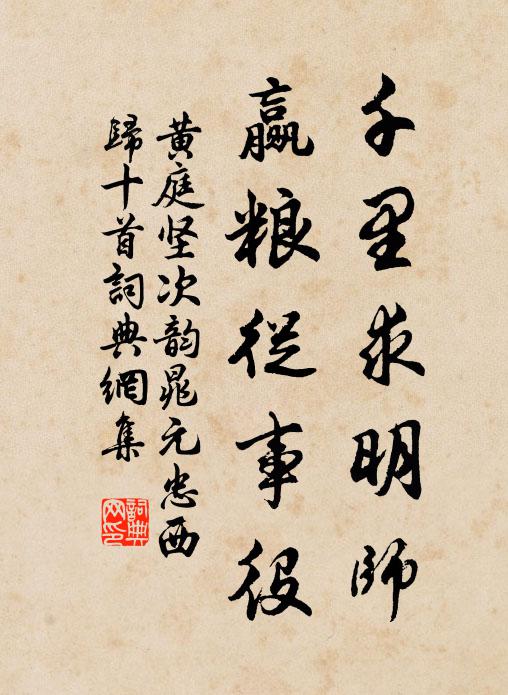 千里求明師
贏粮從事役
黄庭坚次韵晁元忠西
歸十首詞典網集
詞典
网印